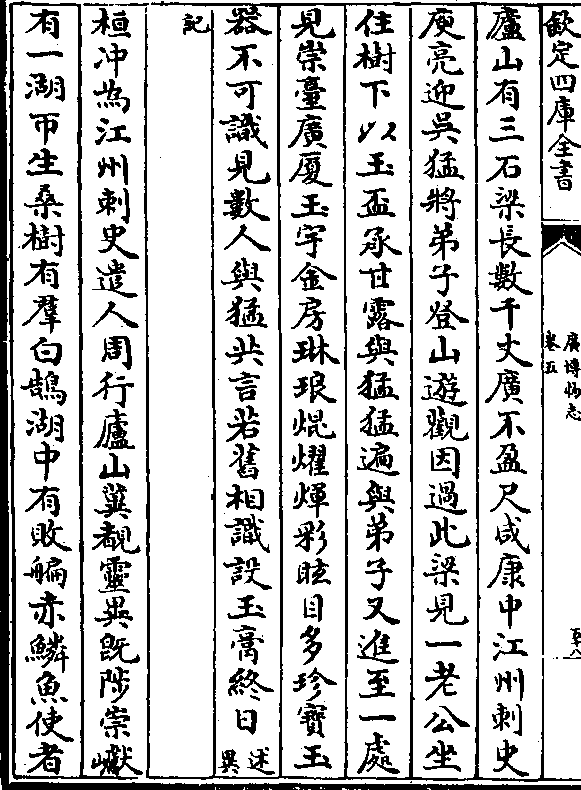 欽定四庫全書
廣博物志
卷五
廬山有三石梁長數千丈廣不盈尺咸康中江州刺史
庾亮迎吳猛將弟子登山遊觀因過此梁見一老公坐
住樹下以玉盃承甘露與猛猛遍與弟子又進至一處
見崇臺廣厦玉宇金房琳琅焜燿煇彩眩目多珍寶玉
器不可識見數人與猛共言若舊相識設玉膏終日述異
記
桓冲為江州刺史遣人周行廬山冀覩靈異既陟崇巘
有一湖帀生桑樹有羣白鵠湖中有敗艑赤鱗魚使者